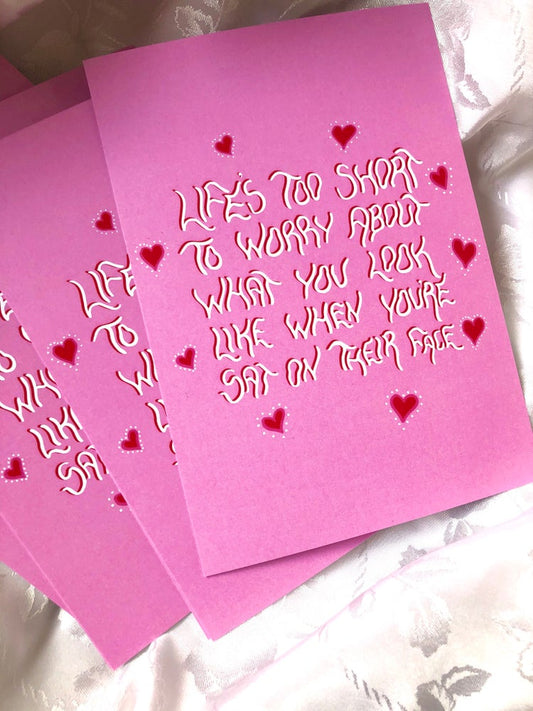 LIFE'S TOO SHORT
TO WORRY ABOUT
WHAT YOU LOOK
LIKE WHEN YOU'RE
SAT ON THEIR FACE
LIFE
TO
WHA
LIK
SAT